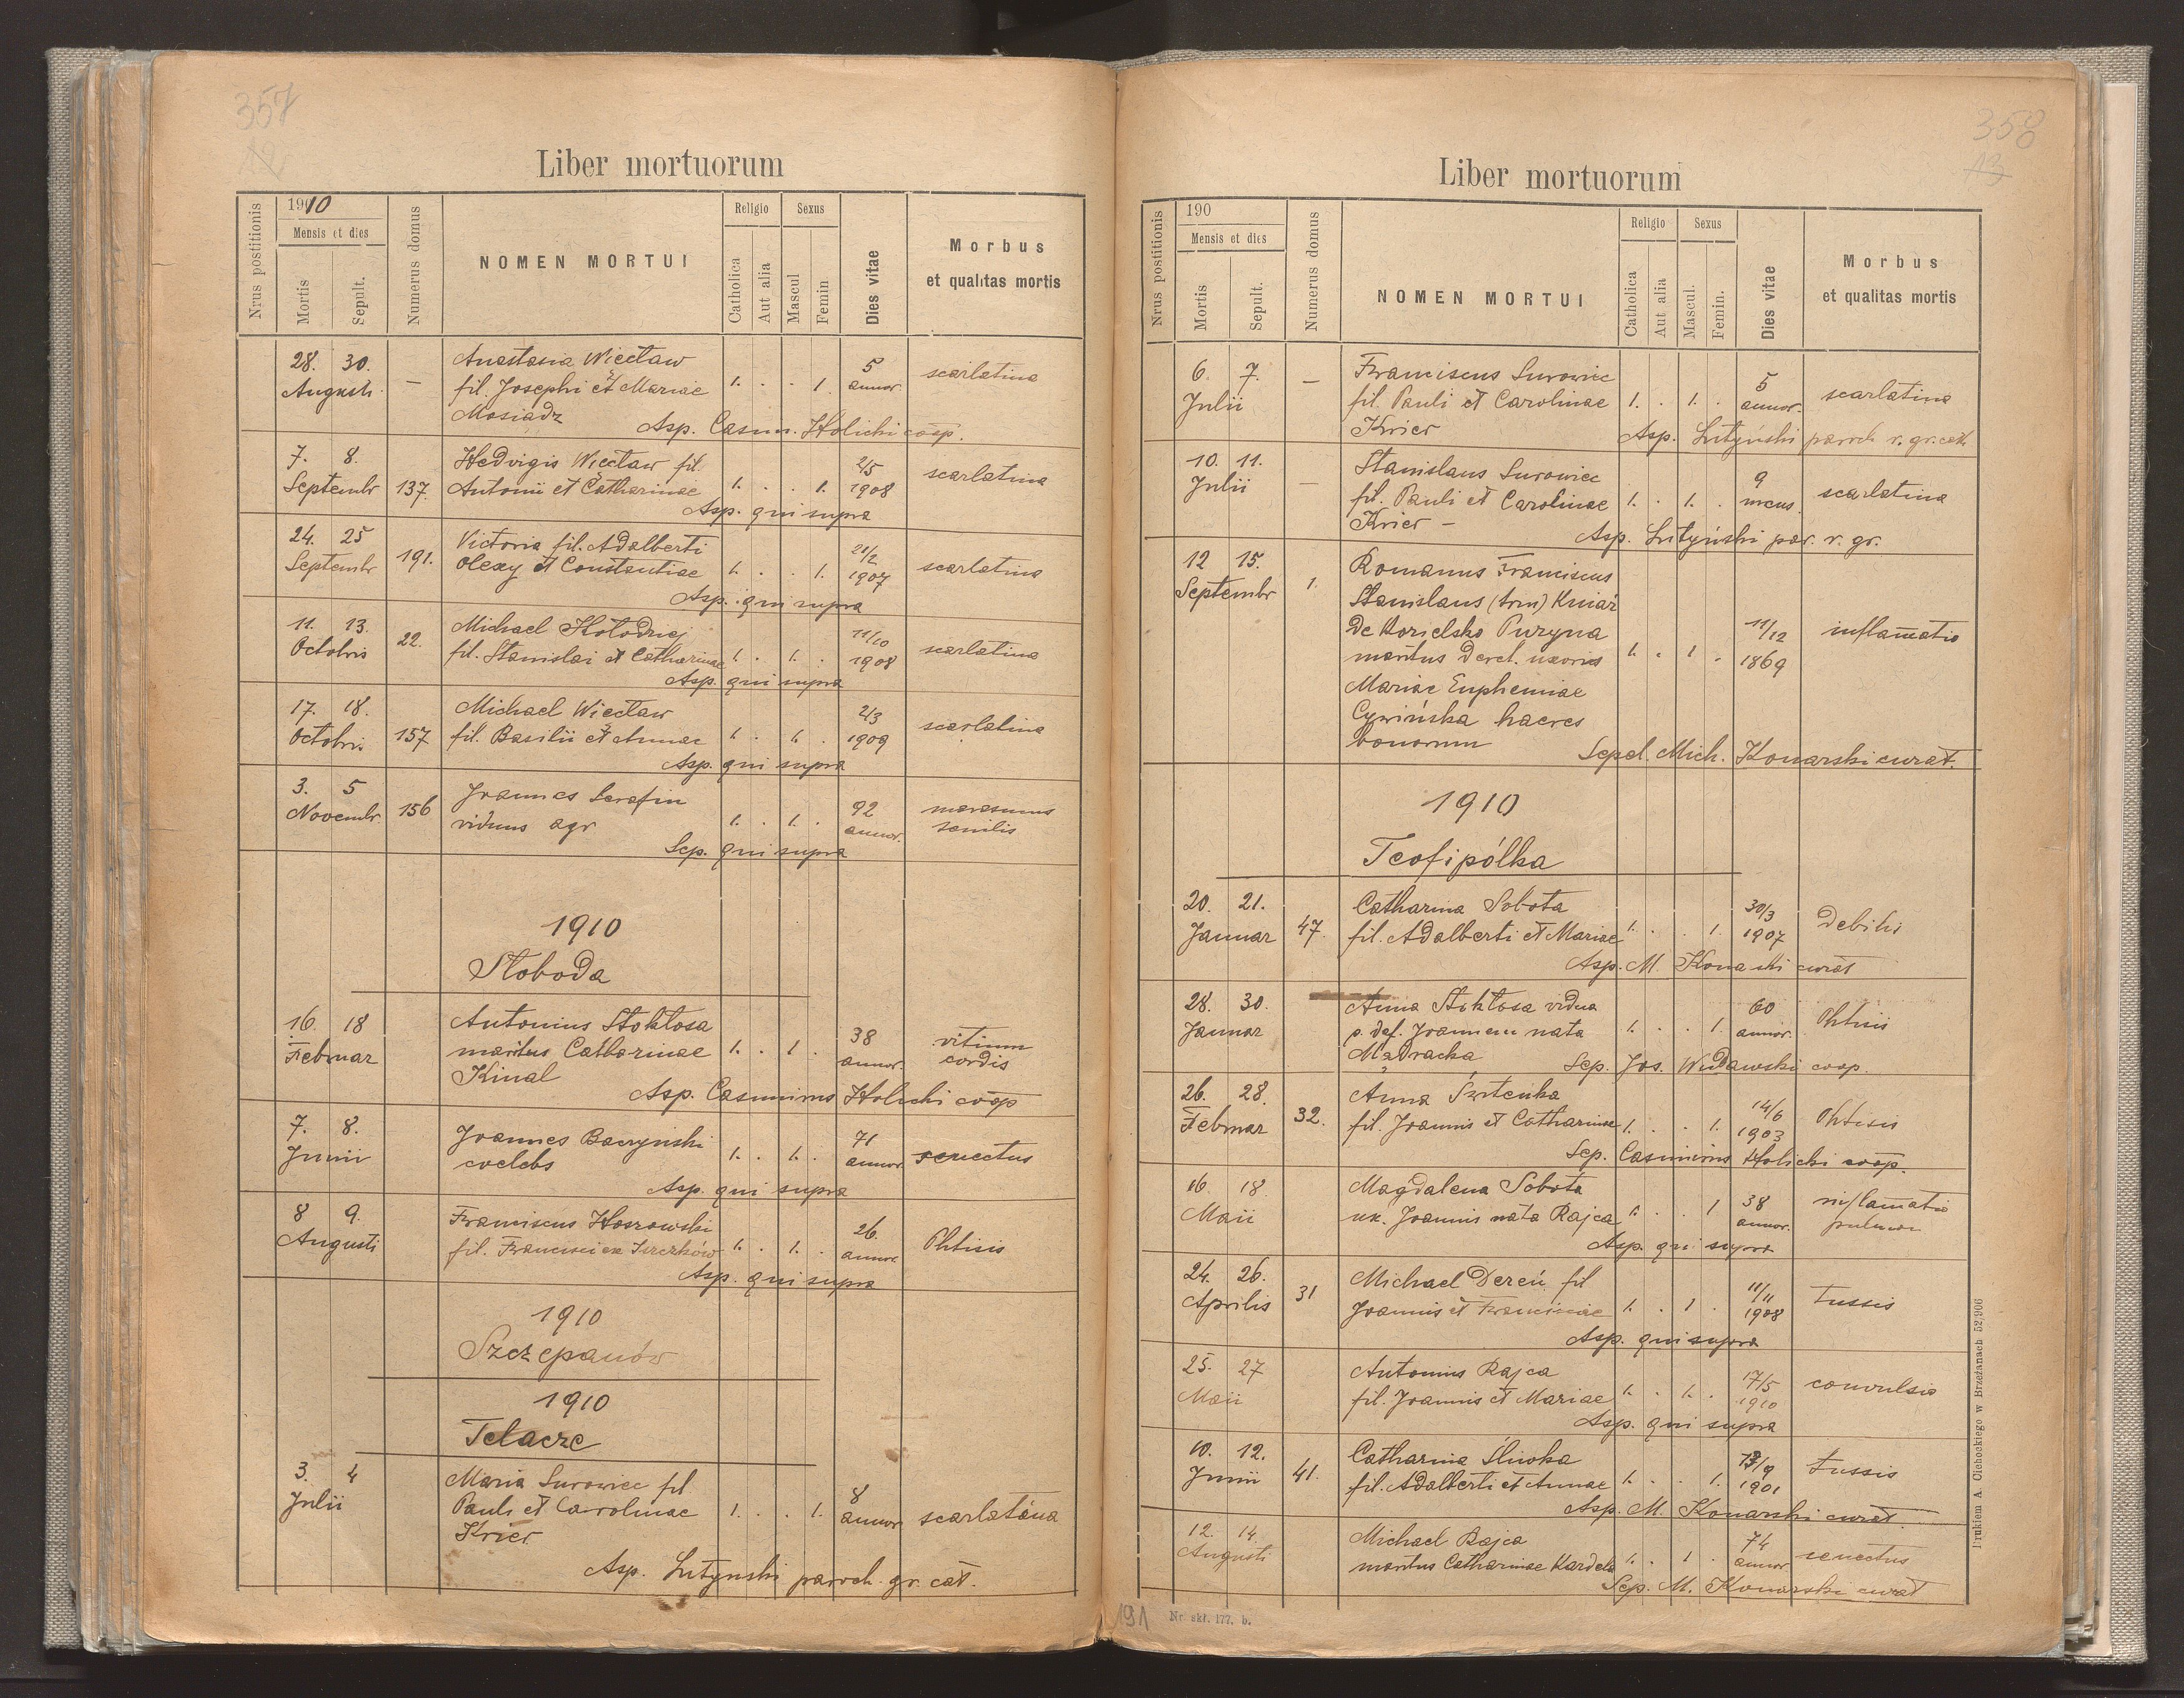 357
12
Liber mortuorum
Nrus postitionis
1910
Mensis et dies
Mortis
Sepult.
Numerus domus
NOMEN MORTUI
Religio
Catholica
Aut alia
Sexus
Mascul
Femin
Dies vitae
Morbus
et qualitas mortis
28. 30. Anastasia Więcław 5 scarlatina
Augusti — fil. Josephi et Mariae 1. . . 1. annor.
Mosiadz Asp. Casim. Holicki coop.
7. 8. Hedvigis Więcław fil. 2/5 scarlatina
Septembr 137. Antonii et Catharinae 1. . . 1. 1908
Asp. qui supra
24. 25 Victoria fil. Adalberti 21/2
Septembr 191. Olexy et Constantiae 1. . . 1. 1907 scarlatina
Asp. qui supra
11. 13. Michael Hołodniej 11/10
Octobris 22. fil. Stanislai et Catharinae 1. . 1. . 1908 scarlatina
Asp. qui supra
17. 18. Michael Więcław 2/3 scarlatina
Octobris 157 fil. Basilii et Annae 1. . 1. . 1909
Asp. qui supra
3. 5 Joannes Serafin 92 marasmus
Novembr. 156 viduus agr 1. . 1. . annor. senilis
Sep. qui supra
1910
Słoboda
16. 18 Antonius Stokłosa 38 vitium
Februar maritus Catharinae 1. . 1. annor. cordis
Kinal
Asp. Casimirus Holicki coop
7. 8. Joannes Baczyński 71
Junii coelebs 1. . 1. . annor. senectus
Asp. qui supra
8 9. Franciscus Hoszowski 26.
Augusti fil. Francisci ex 1. . 1. . annor. Phtisis
Asp. qui supra
1910
Szczepanów
1910
Telacze
3. 4 Maria Surowiec fil 8
Julii Pauli et Carolinae 1. . . 1. annor scarlatina
Krier
Asp. Lutynski paroch. gr. cat.
358
13
Liber mortuorum
Nrus postitionis
190
Mensis et dies
Mortis
Sepult.
Numerus domus
NOMEN MORTUI
Religio
Catholica
Aut alia
Sexus
Mascul.
Femin.
Dies vitae
Morbus
et qualitas mortis
6. 7. Franciscus Surowiec 5 scarlatina
Julii — fil. Pauli et Carolinae 1. . 1. . annor.
Krier Asp. Lutyński paroch r. gr. cath
10. 11. Stanislaus Surowiec 9 scarlatina
Julii — fil. Pauli et Carolinae 1. . 1. . mens.
Krier — Asp. Lutyński par. r. gr.
12 15. Romanus Franciscus
Septembr 1. Stanislaus (trm) Kniaź
de Kozielsko Puzyna 11/12 inflamatio
maritus derel. uxoris 1. . 1 . 1869
Mariae Euphemiae
Cywińska haeres
bonorum Sepel. Mich. Konarski curat.
1910
Teofipólka
20. 21. Catharina Sobota 30/3 Debilis
Januar 47. fil. Adalberti et Mariae 1. . . 1. 1907
Asp. M. Konarski curat
28. 30. Anna Stokłosa vidua 60
Januar p. def. Joannem nata 1. . . 1. annor. Phtisis
Mądracka Sep. Jos. Widawski coop.
26. 28. Anna 14/6
Februar 32. fil. Joannis et Catharinae 1. . . 1. 1903 Phtisis
Sep. Casimirus Holicki coop.
16. 18 Magdalena Sobota 38 inflamatio
Maii ux. Joannis nata Rajca 1. . . 1 annor. pulmon
Asp. qui supra
24. 26. Michael Dereń fil 11/11
Aprilis 31 Joannis et Franciscae 1. . 1 . 1908 tussis
Asp. qui supra
25. 27 Antonius Rajca 17/5 convulsio
Maii fil. Joannis et Mariae 1. . 1. . 1910
Asp. qui supra
10. 12. Catharina Śliwka 13/9 tussis
Junii 41. fil. Adalberti et Annae 1. . . 1. 1901
Asp. M. Konarski curat.
12. 14. Michael Rajca 74 senectus
Augusti maritus Catharinae Kardela 1. . 1 . annor
Sep. M. Konarski curat
Drukiem A. Cichockiego w Brzeżanach 52/906
191
Nr. skł. 177. b.